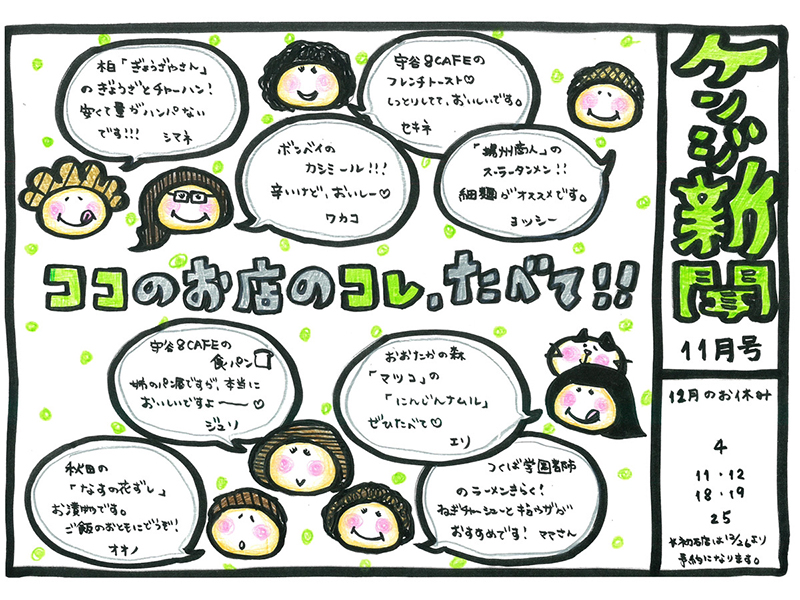 ケンジ新聞
11月号
12月のお休み
4
11・12
18・19
25
は12/26より
予約になります。
柏「ぎょうざやさん」
のぎょうざとチャーハン!
安くて量がハンパない
です!!!
シマネ
守谷8CAFEの
フレンチトースト♡
しっとりしてて、おいしいです。
セキネ
ボンベイの
カシミール!!!
辛いけど、おいしー♡
ワカコ
「揚州商人」の
スーラータンメン!!
細麺がオススメです。
ヨッシー
ココのお店のコレ、たべて!!
守谷8CAFEの
食パン
のパン屋ですが、本当に
おいしいですよ〜♡
ジュリ
おおたかの森
「マツコ」の
「にんじんナムル」
ぜひたべて♡
エリ
秋田の
「なすの花ずし」
お漬物です。
ご飯のおともにどうぞ!
オオノ
つくば学園都市
のラーメンきらく!
ねぎチャーシューと
おすすめです!
ママさん